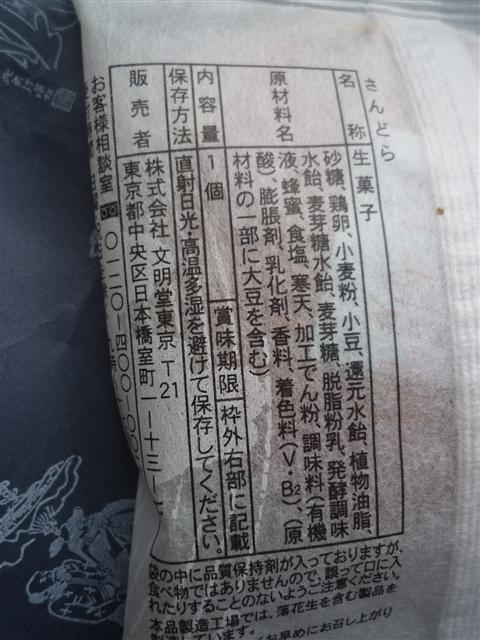 さんどら
名称 生菓子
原材料名 砂糖、鶏卵、小麦粉、小豆、還元水飴、植物油脂、
水飴、麦芽糖水飴、麦芽糖、脱脂粉乳、発酵調味
液、蜂蜜、食塩、寒天、加工でん粉、調味料(有機
酸)、膨脹剤、乳化剤、香料、着色料(V・B2)、(原
材料の一部に大豆を含む)
内容量 1個 賞味期限 枠外右部に記載
保存方法 直射日光・高温多湿を避けて保存してください。
販売者 株式会社 文明堂東京 T21
東京都中央区日本橋室町1-13-
お客様相談室 0120-400-00
袋の中に品質保持剤が入っておりますが、
食べ物ではありませんので、誤って口に入
れたりすることのないようご注意ください。
本品製造工場では、落花生を含む製品を
製造しています。 お早めにお召し上がり